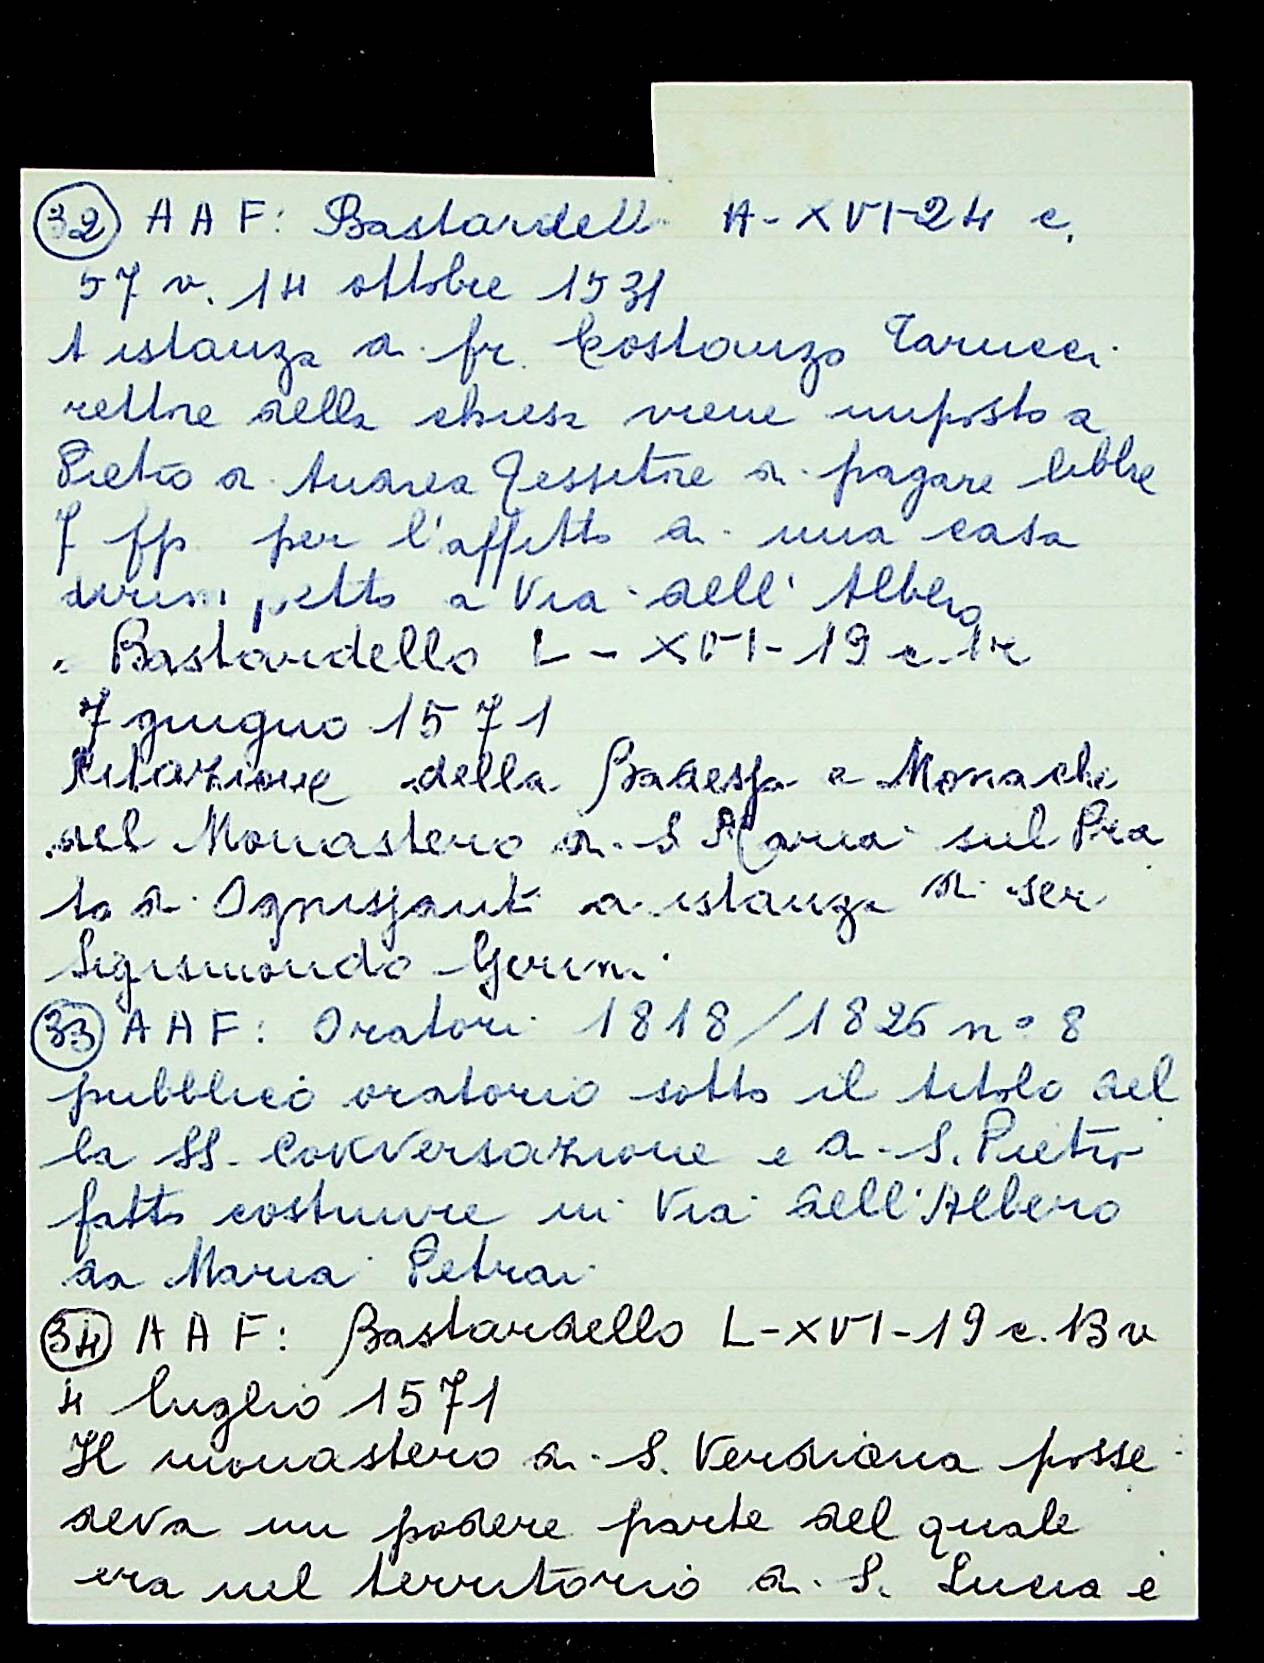 32 AAF: Bastardell A-XVI-24 c.
57 v. 14 ottobre 1531
A istanza di fr. Costanzo Tarucci
rettore della chiesa viene imposto a
Pietro di Andrea Tessitore di pagare libbre
7 fp. per l'affitto di una casa
dirimpetto a Via dell'Albero
Bastardello L-XVI-19 c. 1r
7 giugno 1571
Citazione della Badessa e Monache
del Monastero di S Maria sul Pra
to di Ognissanti a istanza di ser
Sigismondo Gerini
33 AAF: Oratori 1818/1826 n° 8
pubblico oratorio sotto il titolo del
la SS. Conversazione e di S. Pietro
fatto costruire in Via dell'Albero
da Maria Petrai
34 AAF: Bastardello L-XVI-19 c. 13 v
4 luglio 1571
Il monastero di S. Verdiana posse
deva un podere parte del quale
era nel territorio di S. Lucia e